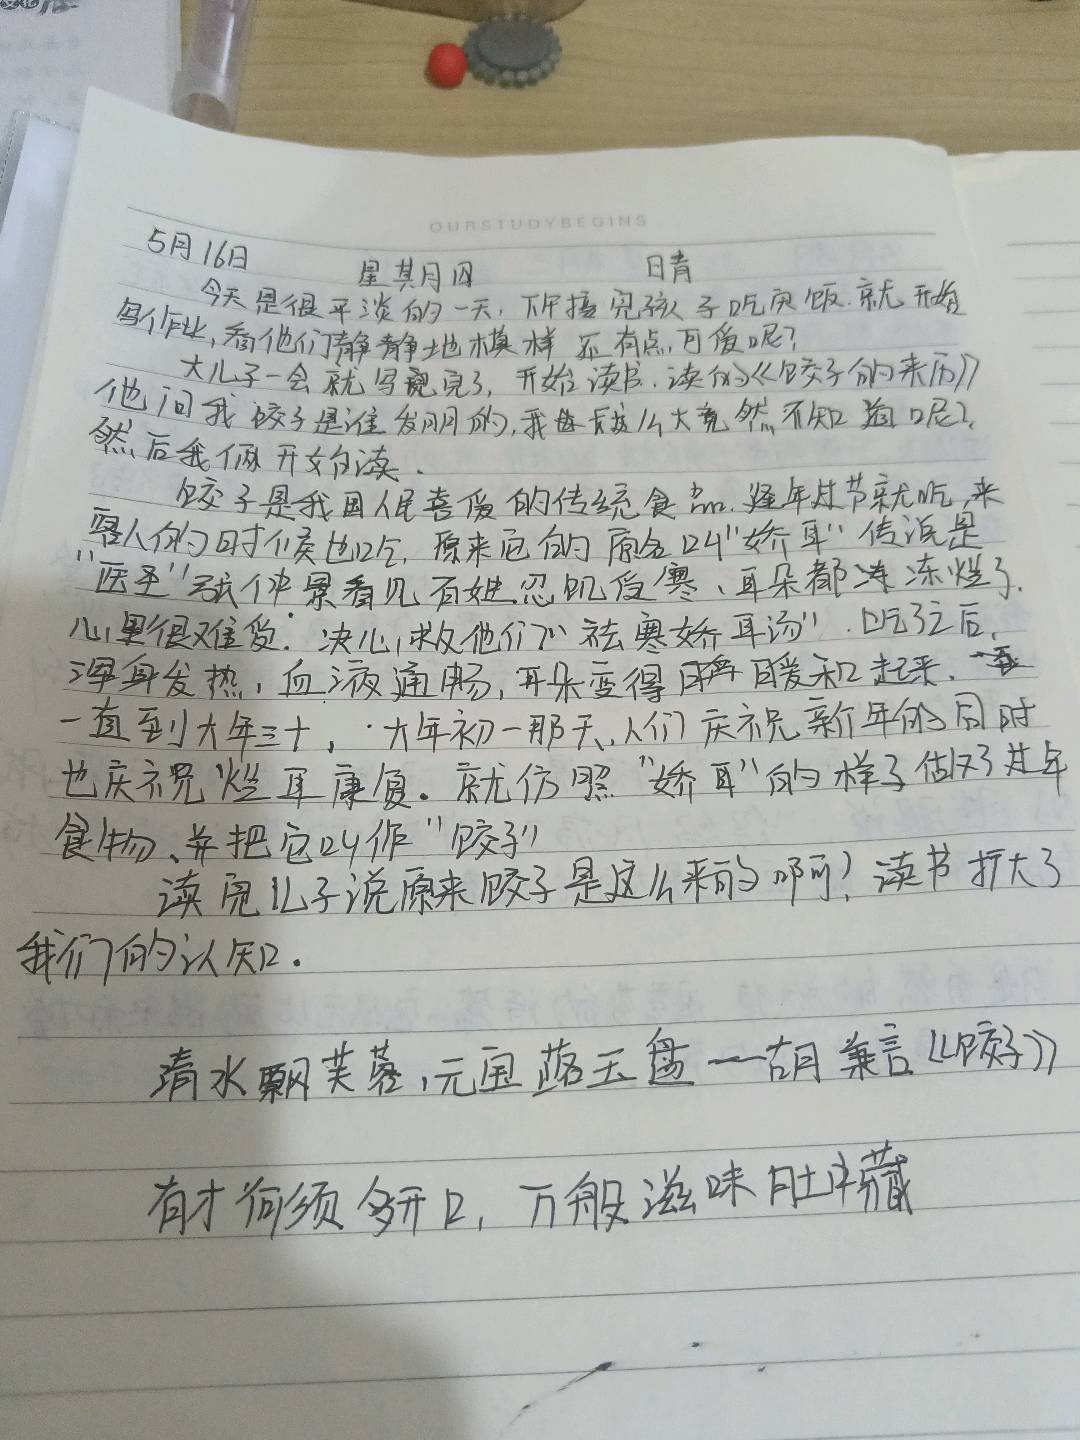 OURSTUDYBEGINS
5月16日 星其月四 晴
今天是很平淡的一天，下午接完孩子吃完饭.就开始
写作业,看他们静静地模样还有点可爱呢?
大儿子一会就写完了,开始读书.读的《饺子的来历》
他问我饺子是谁发明的,我这么大竟然不知道呢?
然后我俩开始读.
饺子是我国人民喜爱的传统食品.逢年过节就吃,来
客人的时候也吃,原来它的原名叫"娇耳"传说是
"医圣"张仲景看见百姓忍饥受寒、耳朵都冻烂了.
心里很难受.决心救他们"祛寒娇耳汤".吃了之后,
浑身发热,血液通畅,耳朵变得暖和起来.
一直到大年三十,大年初一那天,人们庆祝新年的同时
也庆祝烂耳康复.就仿照"娇耳"的样子做了过年
食物、并把它叫作"饺子"
读完儿子说原来饺子是这么来的啊?读书扩大了
我们的认知.
清水飘芙蓉,元宝落玉盘一胡兼言《饺子》
有才何须多开口,万般滋味肚中藏